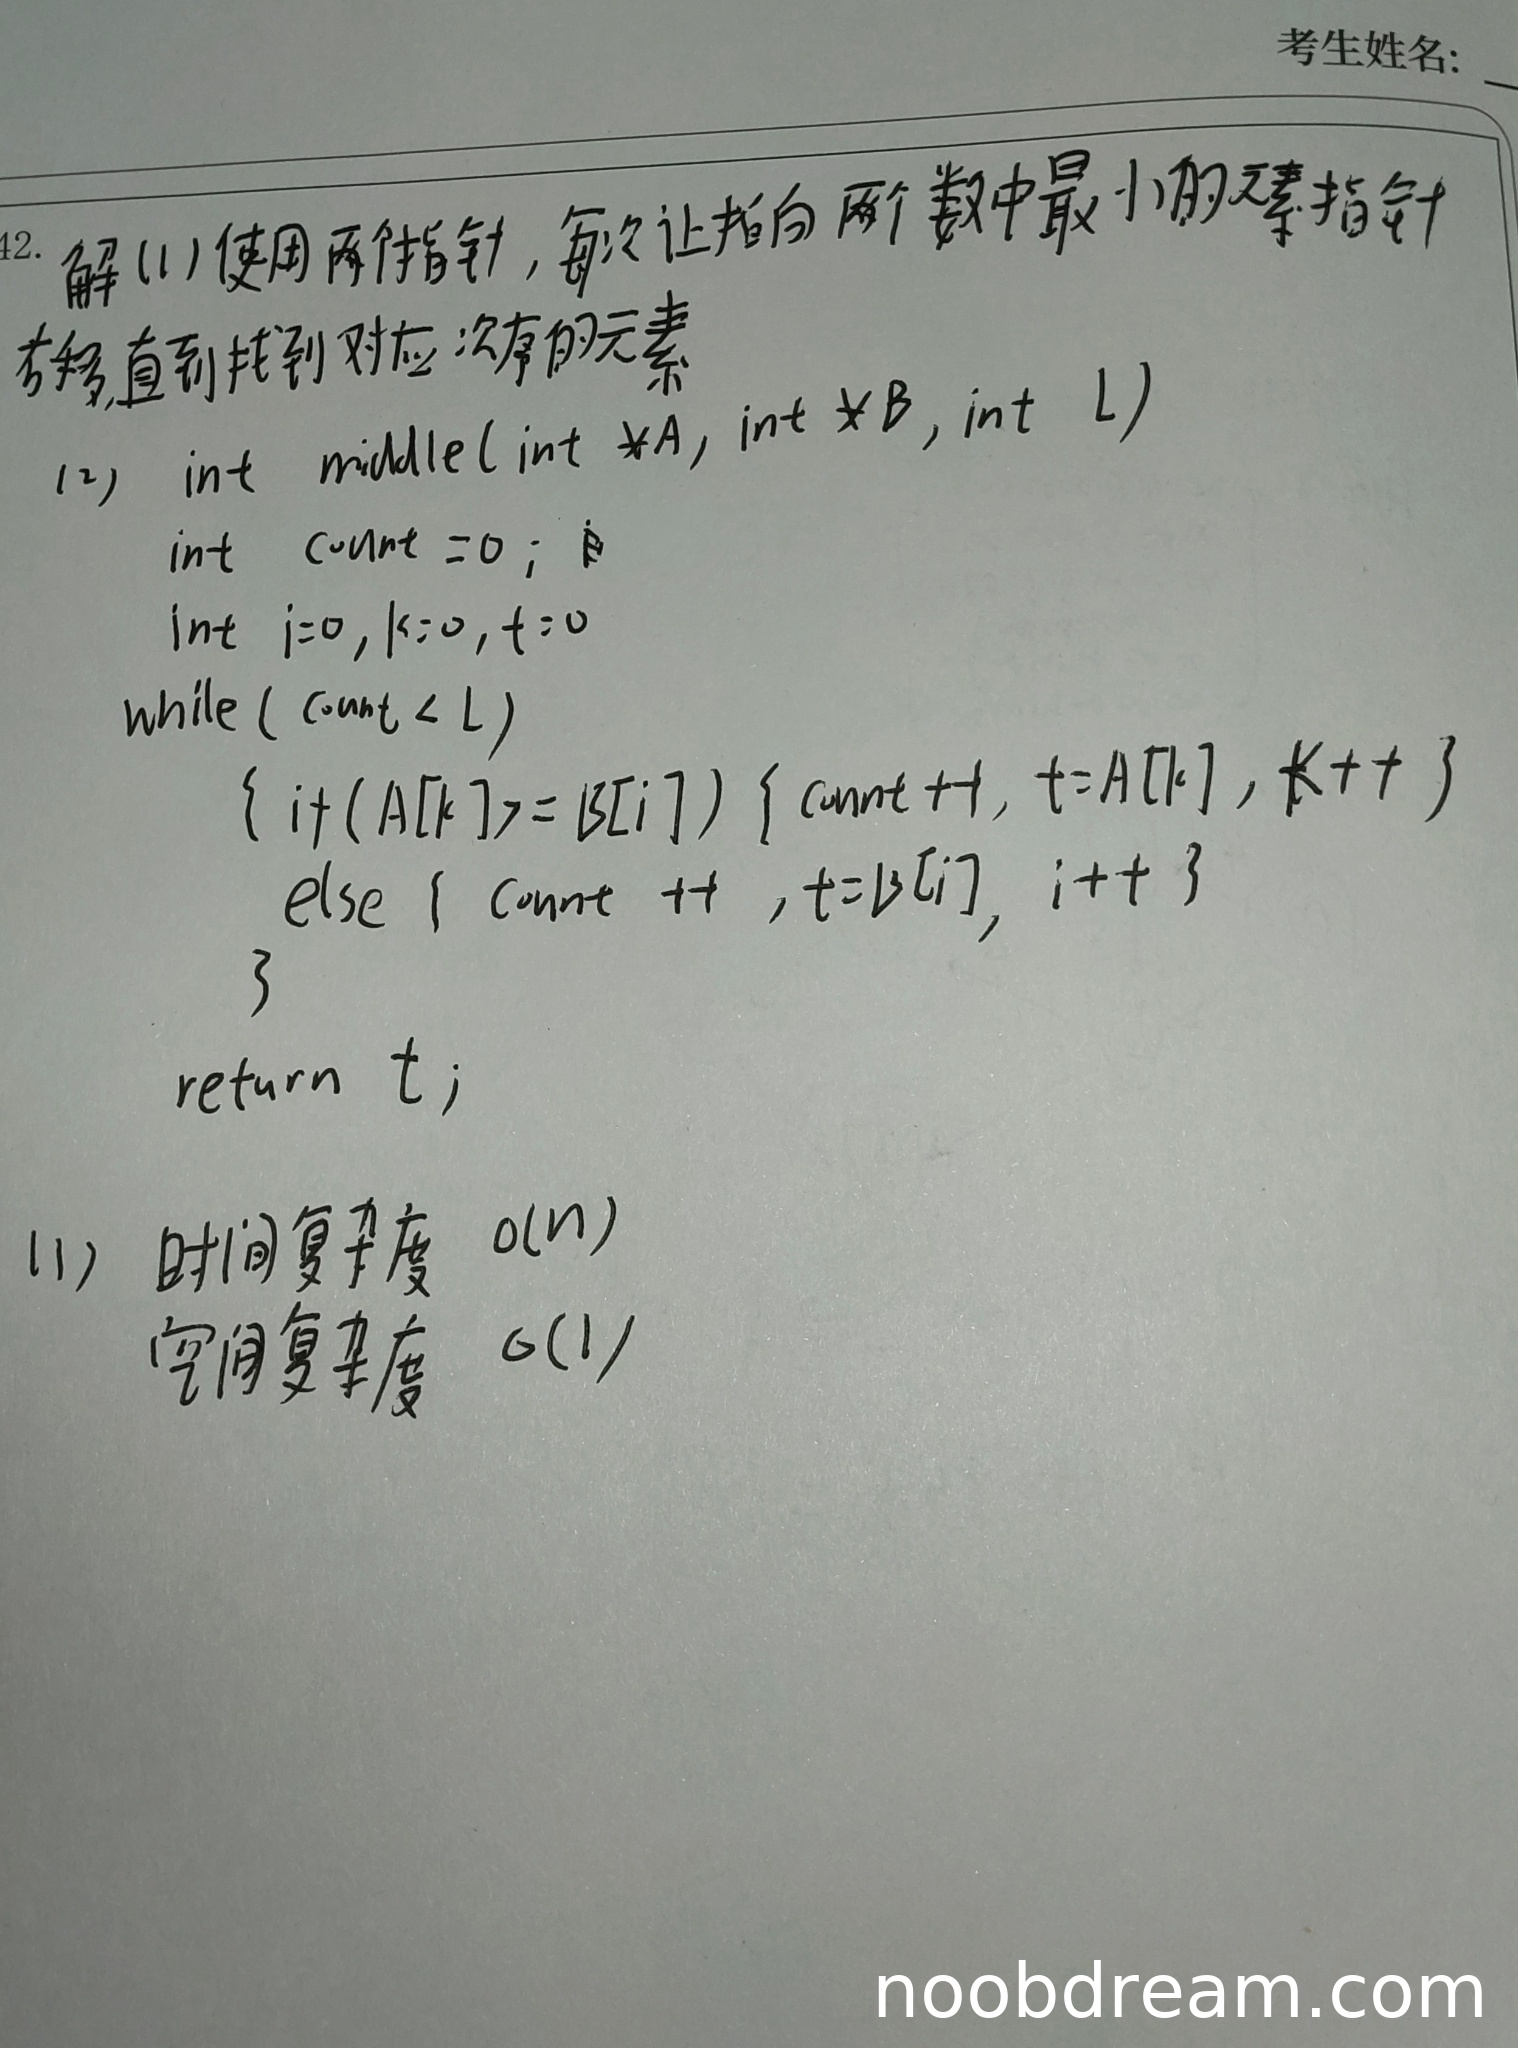 考生姓名:
42. 解(1)使用两个指针,每次让指向两个数中最小的元素指针
右移,直到找到对应次序的元素
(2) int middle(int *A, int *B, int L)
int count=0;
int i=0, k=0, t=0
while(count<L)
{ if(A[k]>=B[i]) { count++, t=A[k], k++ }
else { count ++ , t=B[i], i++ }
}
return t;
(1) 时间复杂度 O(n)
空间复杂度 O(1)
noobdream.com